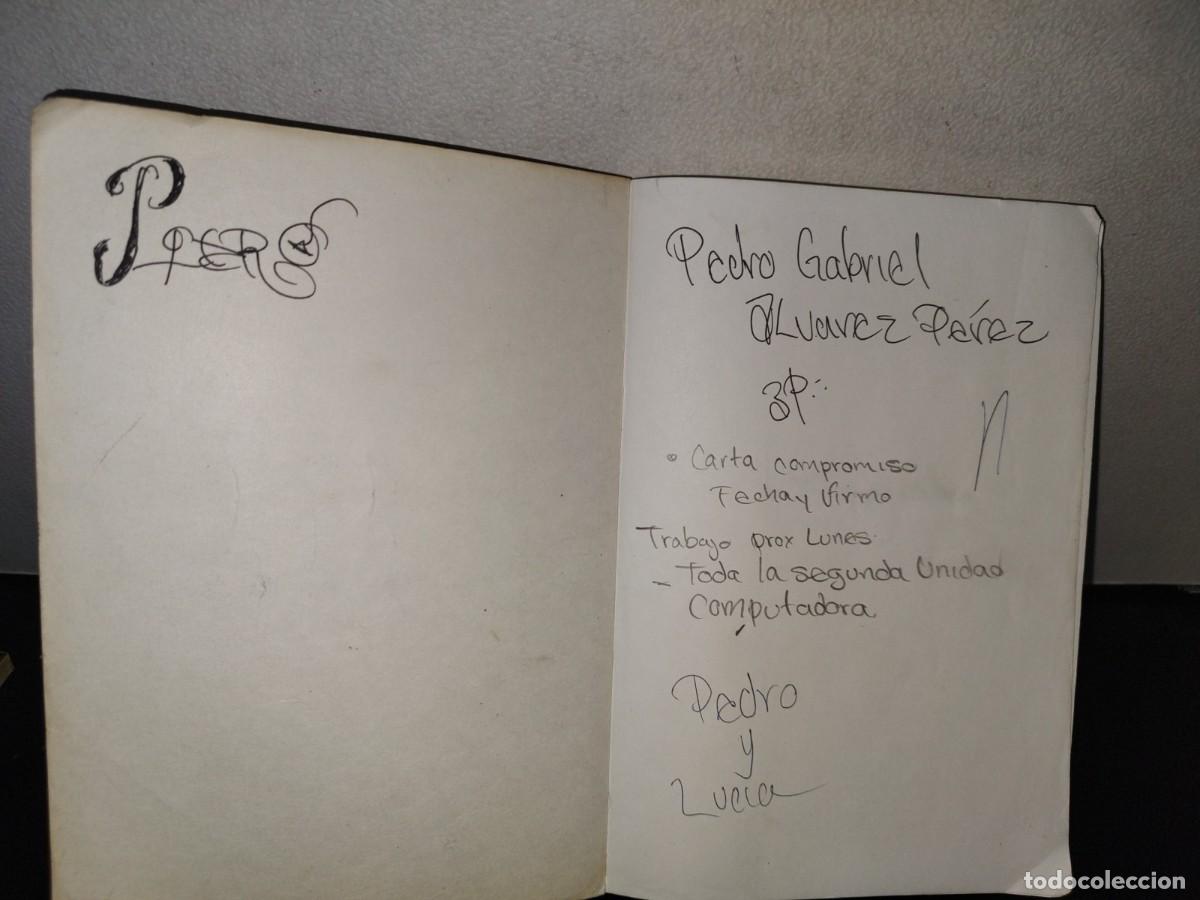 Pedro Gabriel
Alvarez Pérez
3P
• Carta compromiso
Fecha y firmo
Trabajo prox Lunes.
- Toda la segunda Unidad
Computadora
Pedro
y
Lucía
todocoleccion